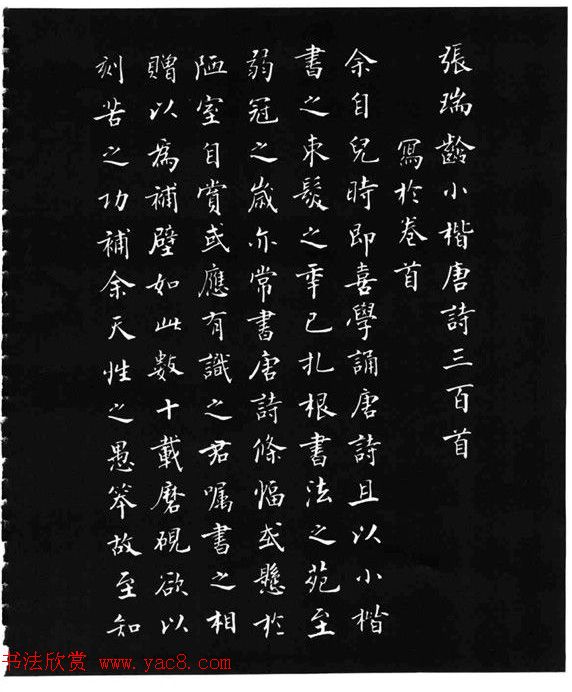 張瑞齡小楷唐詩三百首
寫於卷首
余自兒時即喜學誦唐詩且以小楷
書之束髮之年已扎根書法之苑至
弱冠之歲亦常書唐詩條幅或懸於
陋室自賞或應有識之君囑書之相
贈以為補壁如此數十載磨硯欲以
刻苦之功補余天性之愚笨故至知
书法欣赏 www.yac8.com